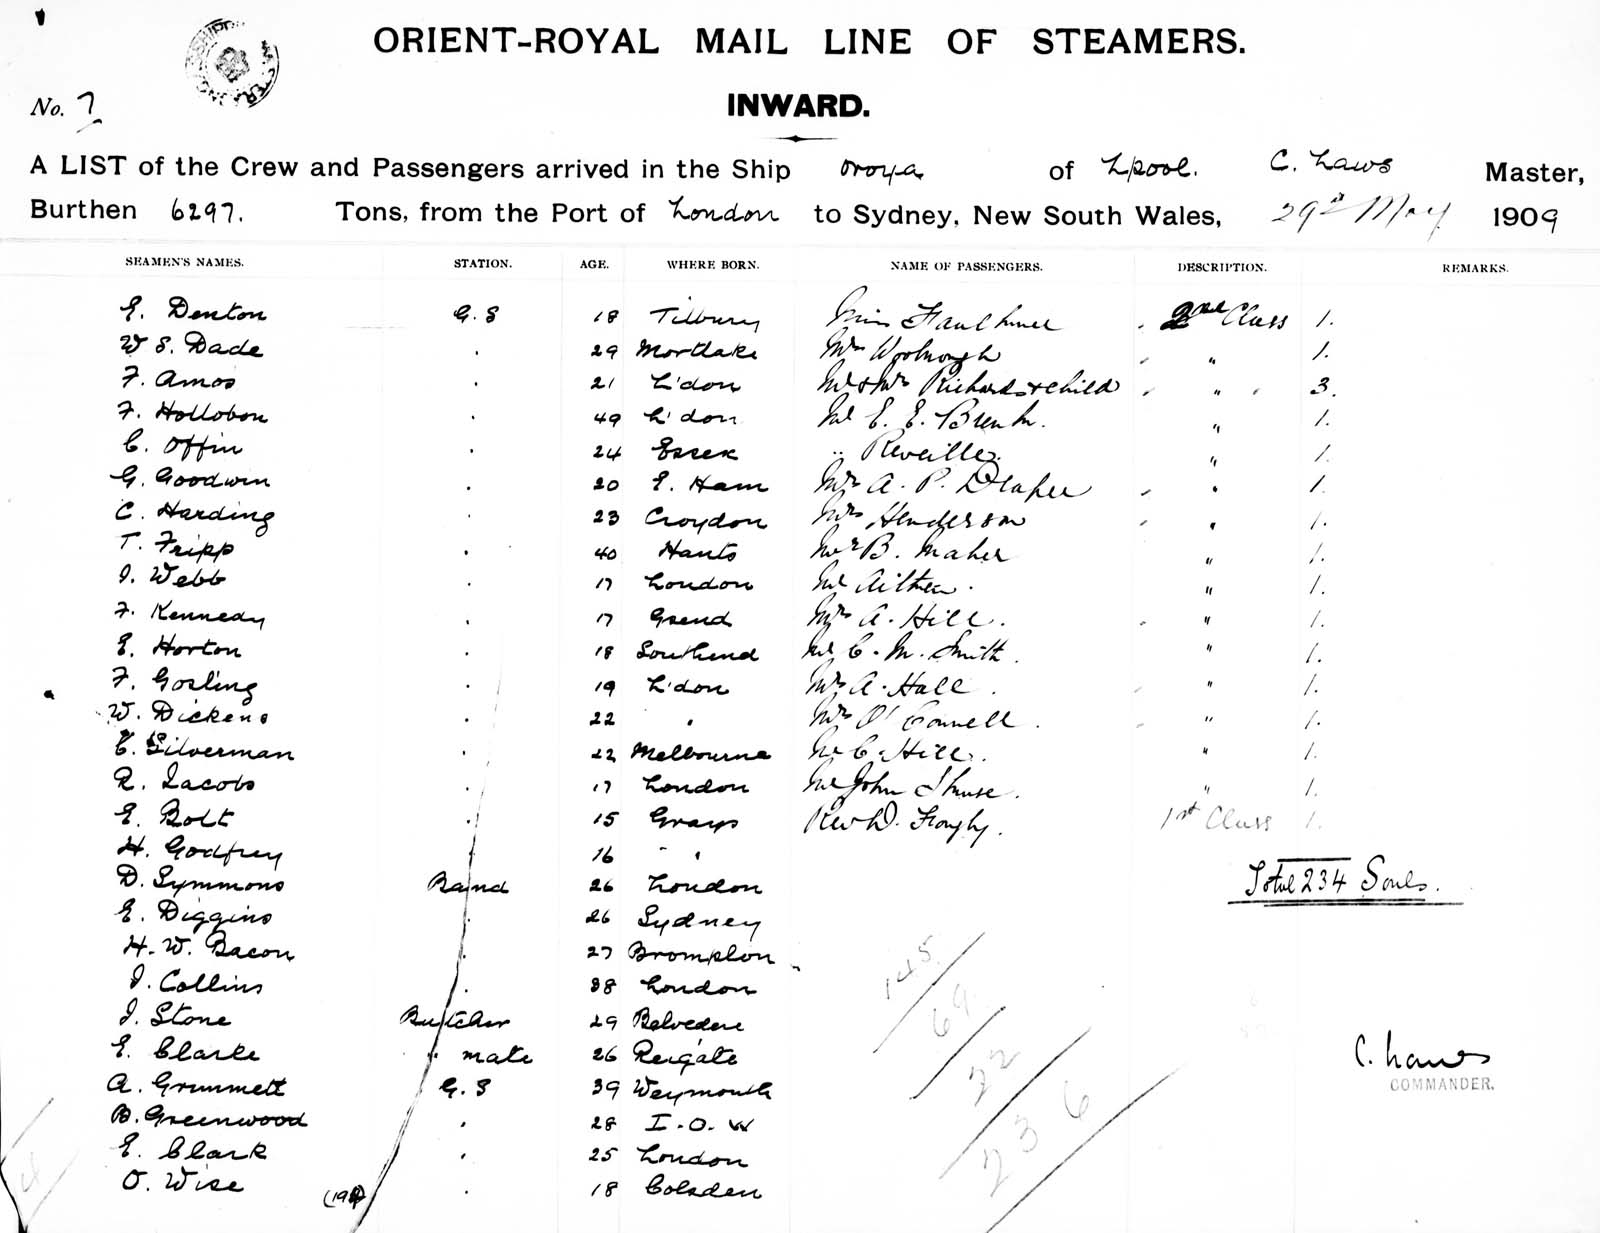 ORIENT-ROYAL MAIL LINE OF STEAMERS.
No. 7
INWARD.
A LIST of the Crew and Passengers arrived in the Ship Oroya of Lpool. C. Laws Master,
Burthen 6297. Tons, from the Port of London to Sydney, New South Wales, 29th May 1909
SEAMEN'S NAMES. STATION. AGE. WHERE BORN. NAME OF PASSENGERS. DESCRIPTION. REMARKS.
E. Denton G.S 18 Tilbury Miss Faulkner 2nd Class 1.
W S. Dade . 29 Mortlake Mrs Woolnough " 1.
F. Amos . 21 L'don Mr & Mrs Richards & child " 3.
F. Hollobon . 49 L'don Mr E. E. " 1.
C. Offin . 24 Essex " Reveille. " 1.
G. Goodwin . 20 E. Ham Mrs A. P. Draper " 1.
C. Harding . 23 Croydon Mrs Henderson " 1.
T. Fripp . 40 Hants Mr B. Maher " 1.
J. Webb . 17 London Mr Aitken. " 1.
F. Kennedy . 17 Gsend Mrs A. Hill. " 1.
E. Horton . 18 Southend Mr C. M. Smith. " 1.
F. Gosling . 19 L'don Mrs A. Hall. " 1.
W. Dickens . 22 " Mrs O'Connell. " 1.
Silverman . 22 Melbourne Mr C. Hill. " 1.
R. Jacobs . 17 London Mr John " 1.
E. Bolt . 15 Grays Rev D. 1st Class 1.
H. Godfrey . 16 " "
D. Symmons Band 26 London Total 234 Souls.
E. Diggins . 26 Sydney
H. W. Bacon . 27 Brompton
J. Collins . 38 London
J. Stone Butcher 29 Belvedere
E. Clarke " mate 26 Reigate
A. Grummett G.S 39 Weymouth
B. Greenwood . 28 I.O.W
E. Clark . 25 London
O. Wise . 18 Colsden
145
69
22
236
C. Laws
COMMANDER.